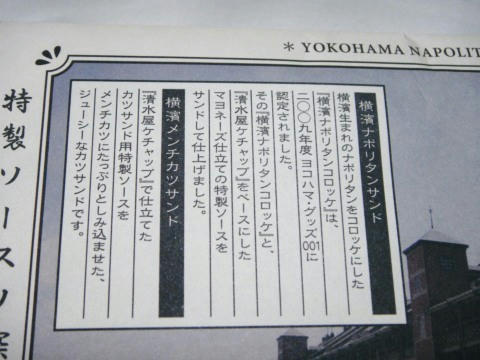 ＊ YOKOHAMA NAPOLIT
横濱ナポリタンサンド
横濱生まれのナポリタンをコロッケにした
『横濱ナポリタンコロッケ』は、
二〇〇九年度ヨコハマ・グッズ001に
認定されました。
その『横濱ナポリタンコロッケ』と、
『清水屋ケチャップ』をベースにした
マヨネーズ仕立ての特製ソースを
サンドして仕上げました。
横濱メンチカツサンド
『清水屋ケチャップ』で仕立てた
カツサンド用特製ソースを
メンチカツにたっぷりとしみ込ませた、
ジューシーなカツサンドです。
特製ソースソ